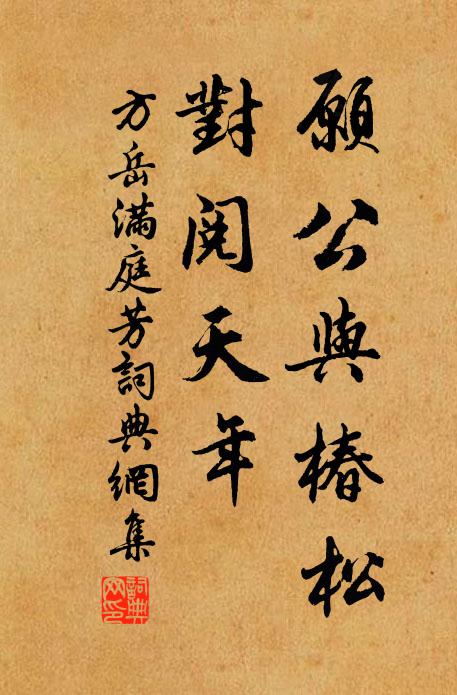 願公與椿松
對閱天年
方岳滿庭芳詞典網集
詞典網印